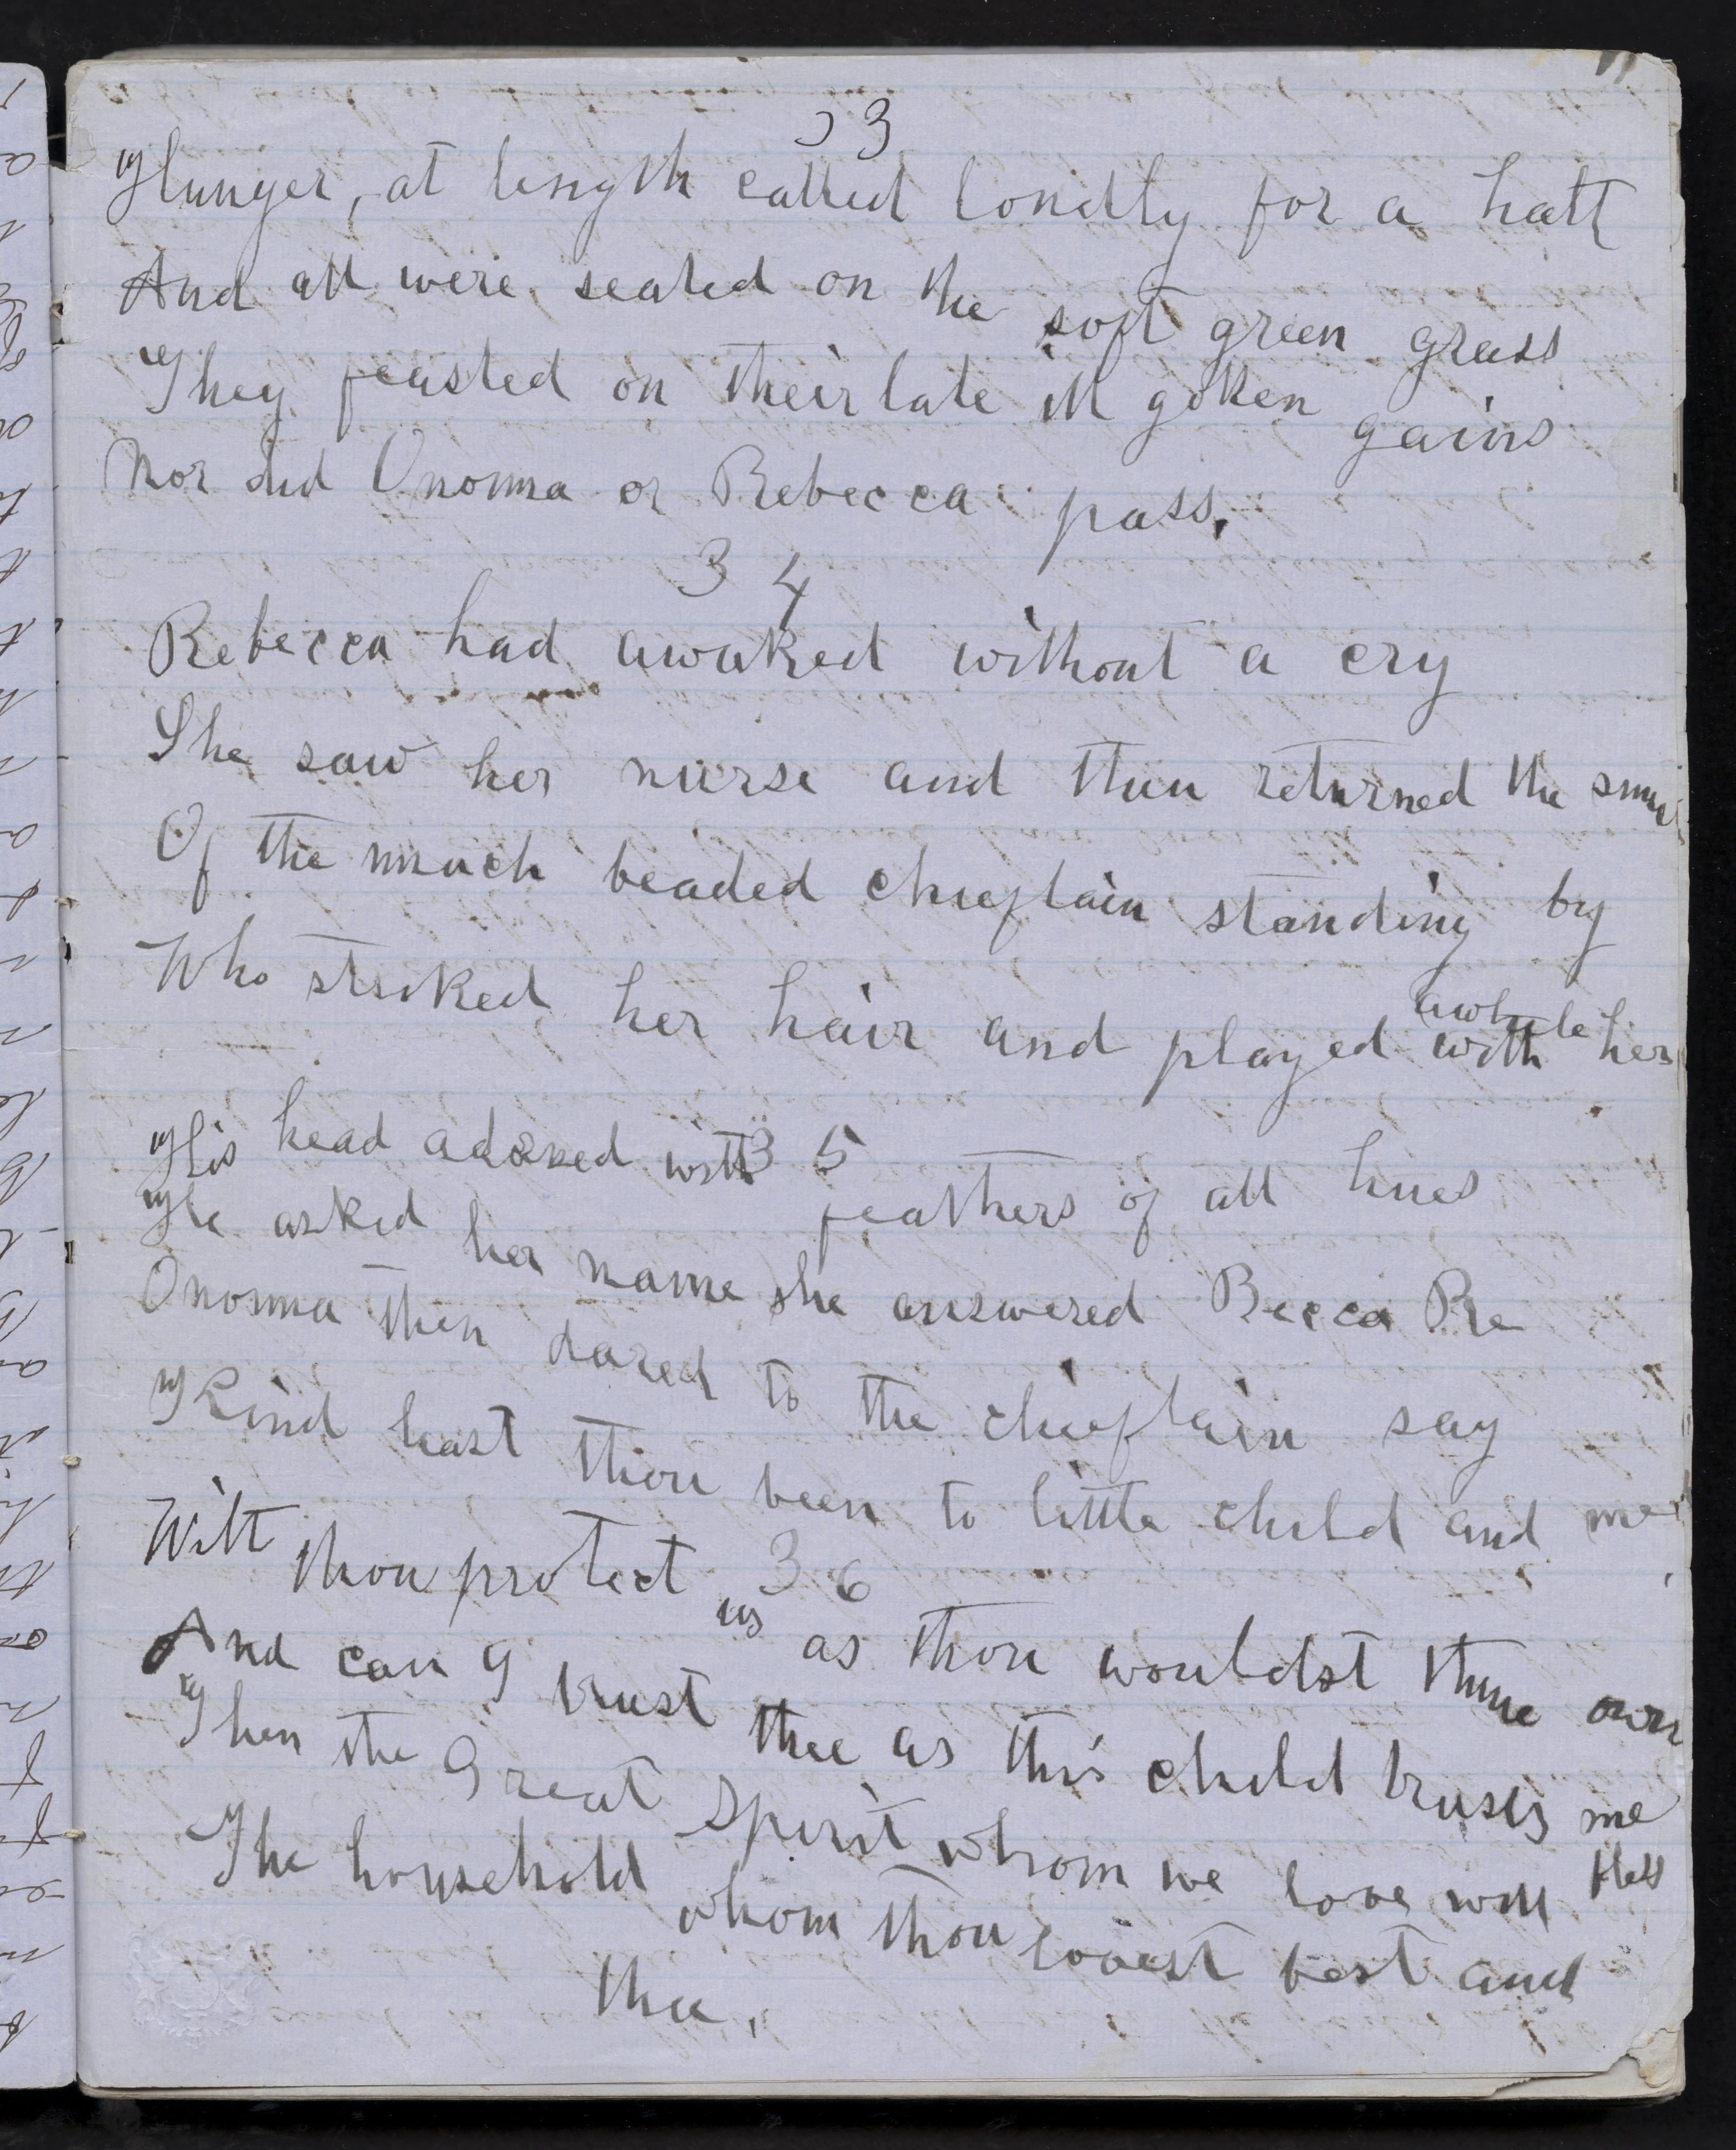 33
Hunger, at length called loudly for a halt
And all were seated on the soft green grass
They feasted on their late ill gotten gains
Nor did Ononna or Rebecca pass.
34
Rebecca had awaked without a cry
She saw her nurse and then returned the smile
Of the much beaded chieftain standing by
Who stroked her hair and played with her
awhile
35
His head adorned with feathers of all hues
He asked her name she answered Becca Re
Ononna then dared to the chieftain say
Kind hast thou been to little child and me
36
Wilt thou protect us as thou wouldst thine own
And can I trust thee as this child trusts me
Then the Great Spirit whom we love will bless
The household whom thou lovest best and
thee.